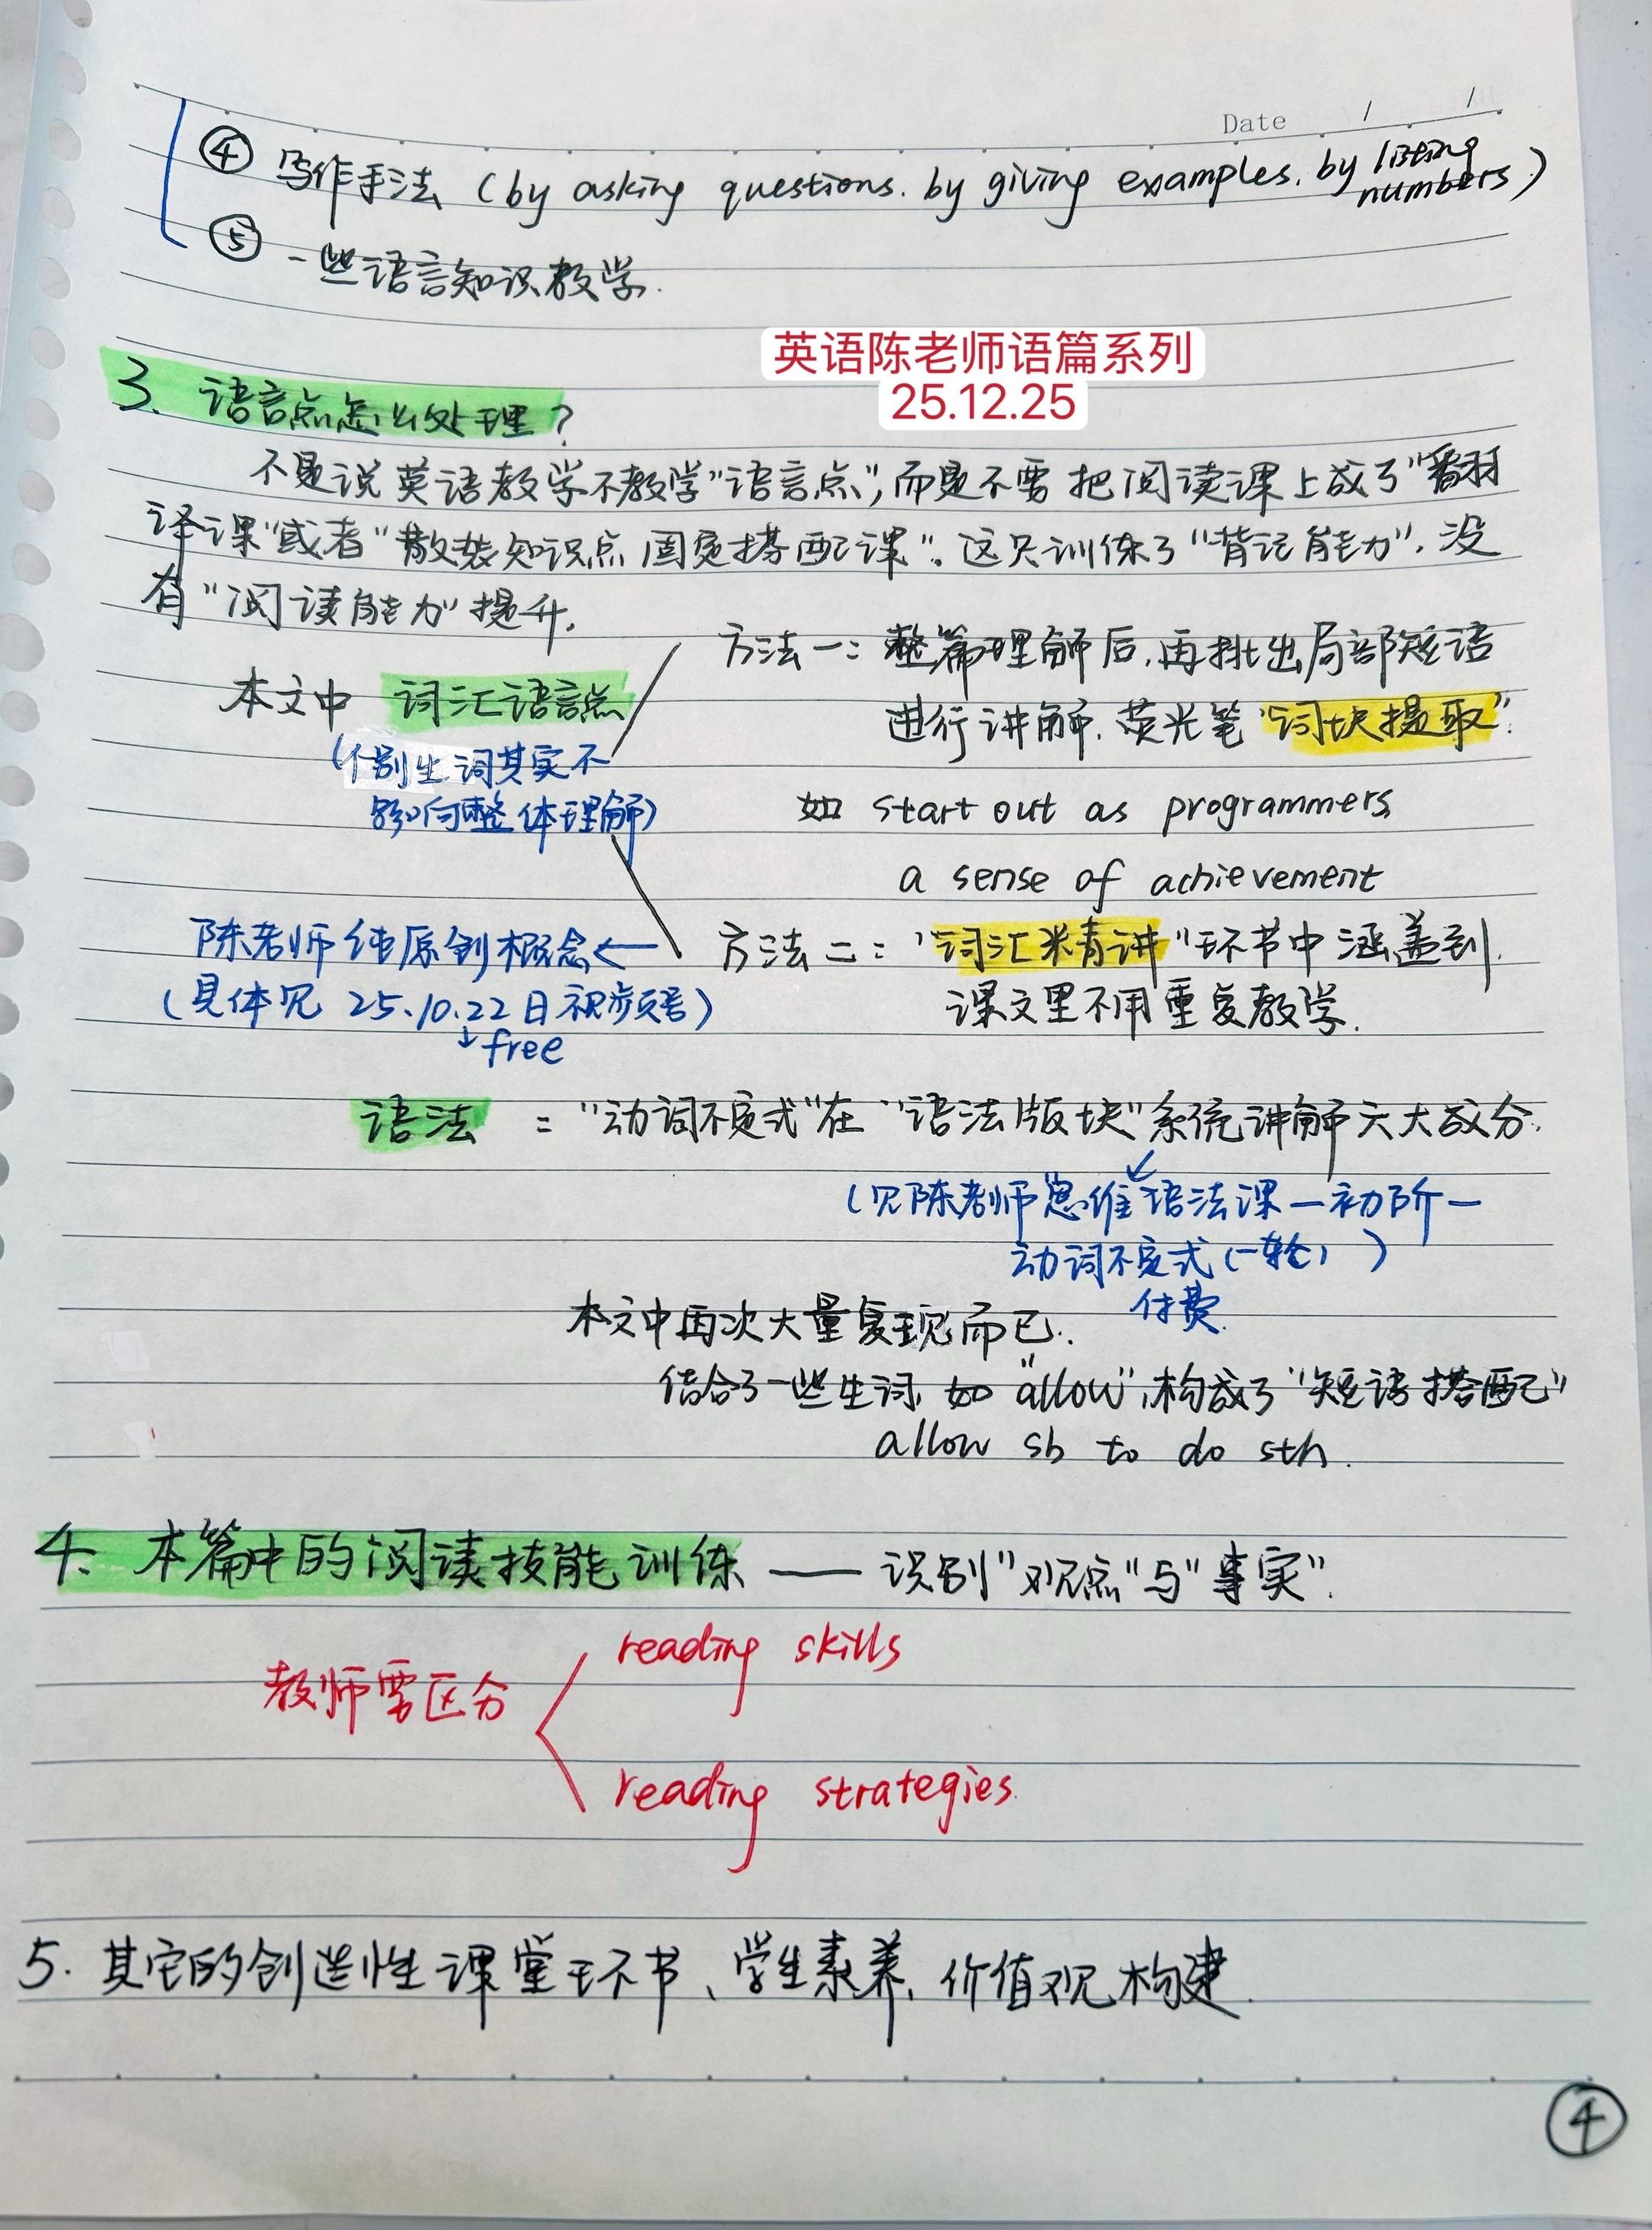 Date / /
④ 写作手法 (by asking questions. by giving examples. by listing numbers)
⑤ 一些语言知识教学.
英语陈老师语篇系列
25.12.25
3. 语言点怎么处理?
不是说英语教学不教学"语言点",而是不要把阅读课上成了"翻
译课"或者"散装知识点固定搭配课". 这只训练了"背记能力", 没
有"阅读能力"提升.
本文中 词汇语言点
(个别生词其实不
影响整体理解)
方法一: 整篇理解后,再挑出局部短语
进行讲解. 荧光笔"词块提取".
如 start out as programmers
a sense of achievement
方法二: "词汇精讲"环节中涵盖到.
课文里不用重复教学.
陈老师纯原创概念←
(具体见 25.10.22日视频号)
↓free
语法 : "动词不定式"在"语法版块"系统讲解六大成分.
(见陈老师思维语法课-初阶-
动词不定式(一轮) )
付费.
本文中再次大量复现而已.
结合了一些生词 如"allow",构成了"短语搭配"
allow sb to do sth.
4. 本篇中的阅读技能训练 —— 识别"观点"与"事实".
教师需区分
reading skills
reading strategies.
5. 其它的创造性课堂环节、学生素养、价值观构建.
④